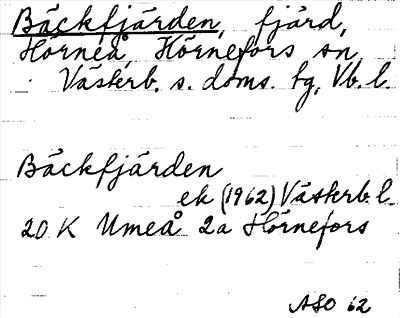 Bäckfjärden, fjärd,
Hörneå, Hörnefors sn,
Västerb. s. doms. tg, Vb. l.
Bäckfjärden
ek (1962) Västerb. l.
20 K Umeå 2a Hörnefors
ASO 62